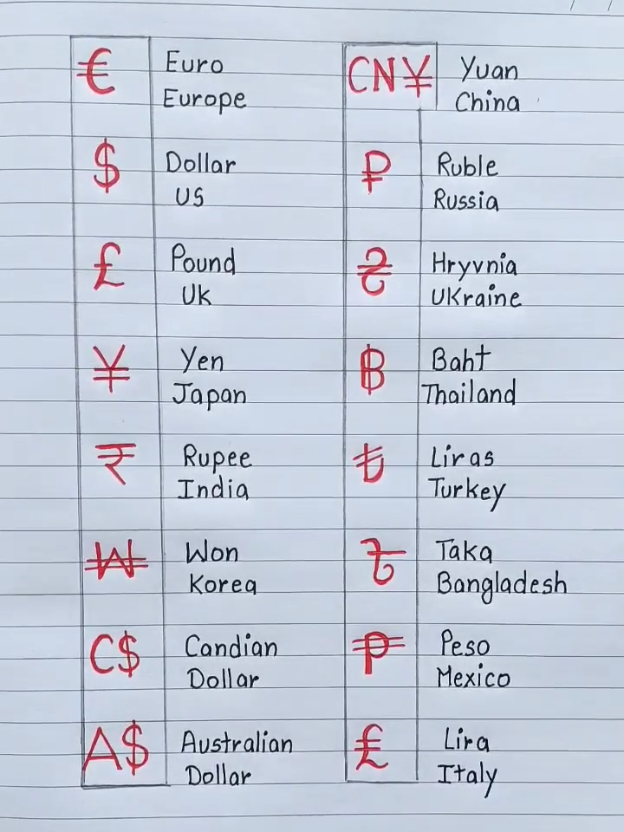 € Euro
Europe
$ Dollar
US
£ Pound
Uk
¥ Yen
Japan
₹ Rupee
India
₩ Won
Korea
C$ Candian
Dollar
A$ Australian
Dollar
CN¥ Yuan
China
₽ Ruble
Russia
₴ Hryvnia
Ukraine
฿ Baht
Thailand
₺ Liras
Turkey
৳ Taka
Bangladesh
₱ Peso
Mexico
₤ Lira
Italy